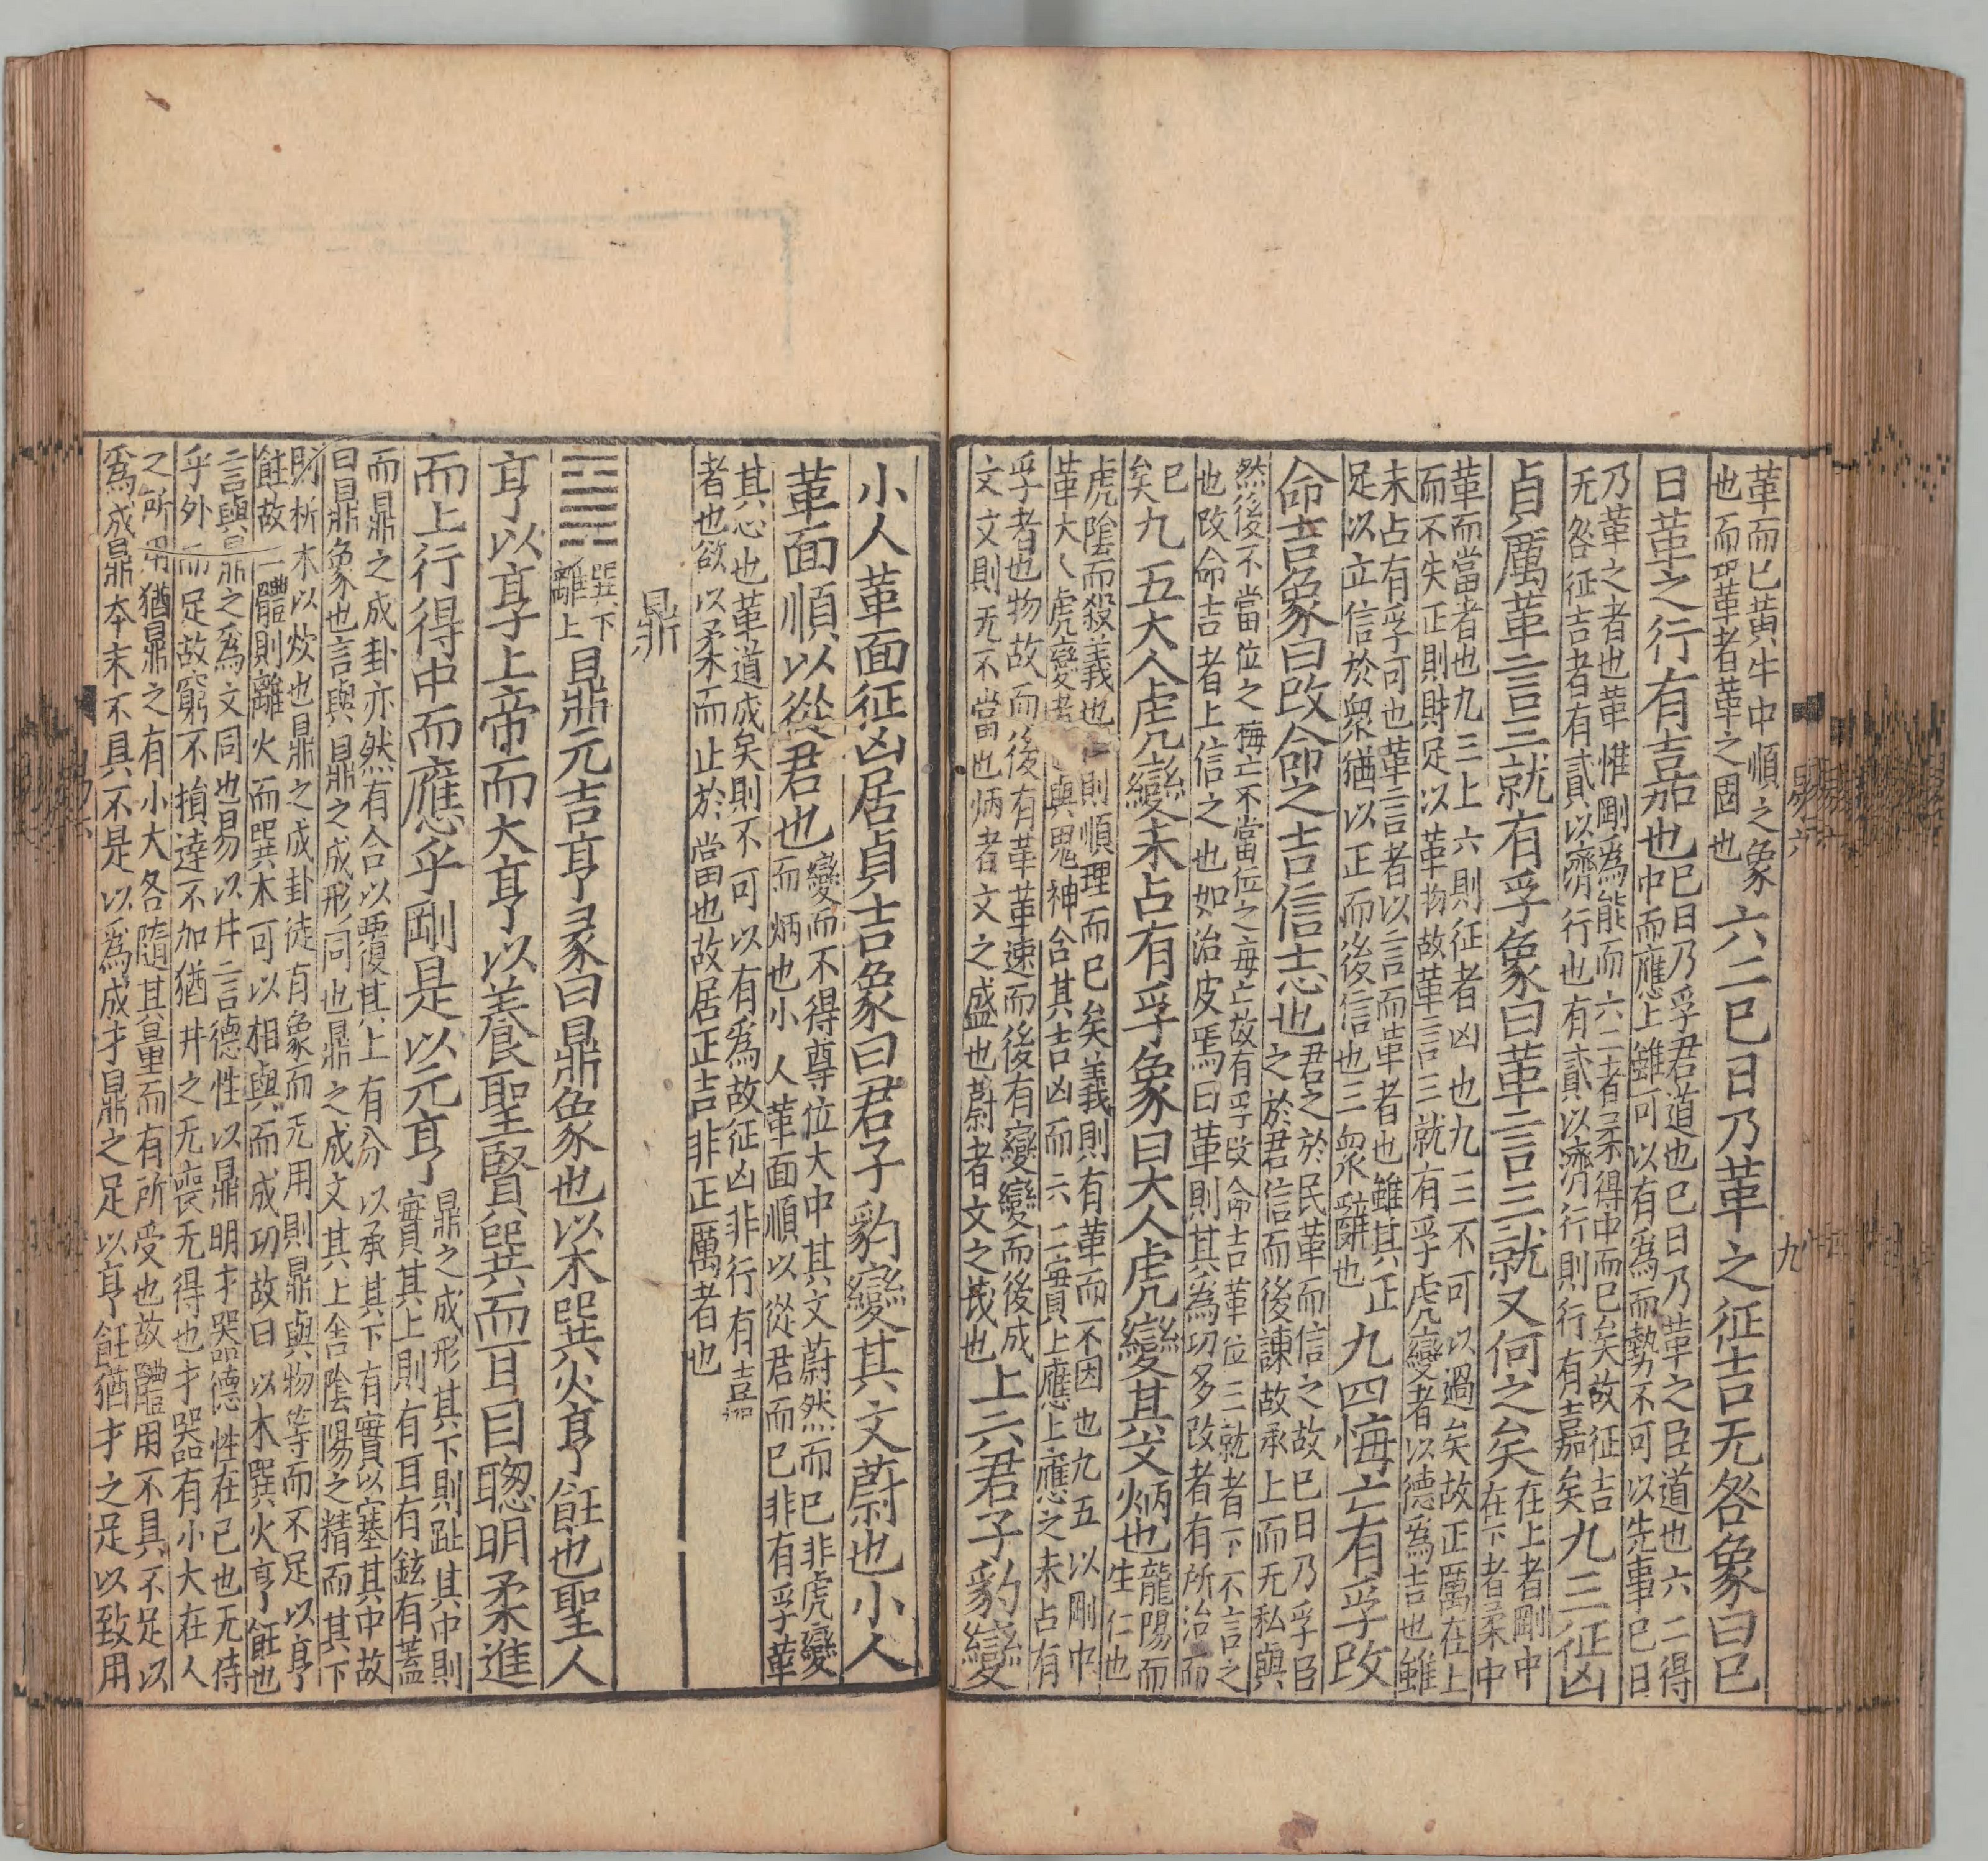 革而已黃牛中順之象
也而鞏革者革之固也
六二巳日乃革之征吉无咎象曰巳
日革之行有嘉也
巳日乃孚君道也巳日乃革之臣道也六二得
中而應上雖可以有爲而勢不可以先事巳日
乃革之者也革惟剛爲能而六二者柔得中而已矣故征吉
无咎征吉者有貳以濟行也有貳以濟行則行有嘉矣
九三征凶
貞厲革言三就有孚象曰革言三就又何之矣
在上者剛中
在下者柔中
革而當者也九三上六則征者凶也九三不可以過矣故正厲在上
而不失正則財足以革物故革言三就有孚虎變者以德爲吉也雖
未占有孚可也革言者以言而革者也雖其正
足以立信於衆猶以正而後信也三衆辭也
九四悔亡有孚改
命吉象曰改命之吉信志也
君之於民革而信之故巳日乃孚臣
之於君信而後諫故承上而无私與
然後不當位之悔亡不當位之毎亡故有孚改命吉革位三就者下不言之
也改命吉者上信之也如治皮焉曰革則其爲功多改者有所治而
已
矣
九五大人虎變未占有孚象曰大人虎變其文炳也
龍陽而
生仁也
虎陰而殺義也 則順理而已矣義則有革而不因也九五以剛中
革大人虎變者 與鬼神合其吉凶而六二實上應上應之未占有
孚者也物故而後有革革速而後有變變而後成
文文則无不當也炳者文之盛也蔚者文之茂也
上六君子豹變
小人革面征凶居貞吉象曰君子豹變其文蔚也小人
革面順以從君也
變而不得尊位大中其文蔚然而已非虎變
而炳也小人革面順以從君而已非有孚革
其心也革道成矣則不可以有爲故征凶非行有嘉
者也欲以柔而止於當也故居正吉非正厲者也
鼎
巽下
離上
曰鼎元吉亨彖曰鼎象也以木巽火亨飪也聖人
亨以享上帝而大亨以養聖賢巽而耳目聦明柔進
而上行得中而應乎剛是以元亨
鼎之成形其下則趾其中則
實其上則有耳有鉉有蓋
而鼎之成卦亦然有合以覆其上有分以承其下有實以塞其中故
曰鼎象也言與鼎之成形同也鼎之成文其上舍陰陽之精而其下
則析木以炊也鼎之成卦徒有象而无用則鼎與物等而不足以亨
飪故一體則離火而巽木可以相與而成功故曰以木巽火亨飪也
言與鼎之爲文同也易以井言德性以鼎明才器德性在己也无待
乎外而足故窮不損達不加猶井之无喪无得也才器有小大在人
之所用猶鼎之有小大各隨其量而有所受也故體用不具不足以
爲成鼎本末不具不是以爲成才鼎之足以亨飪猶才之足以致用
易六
九